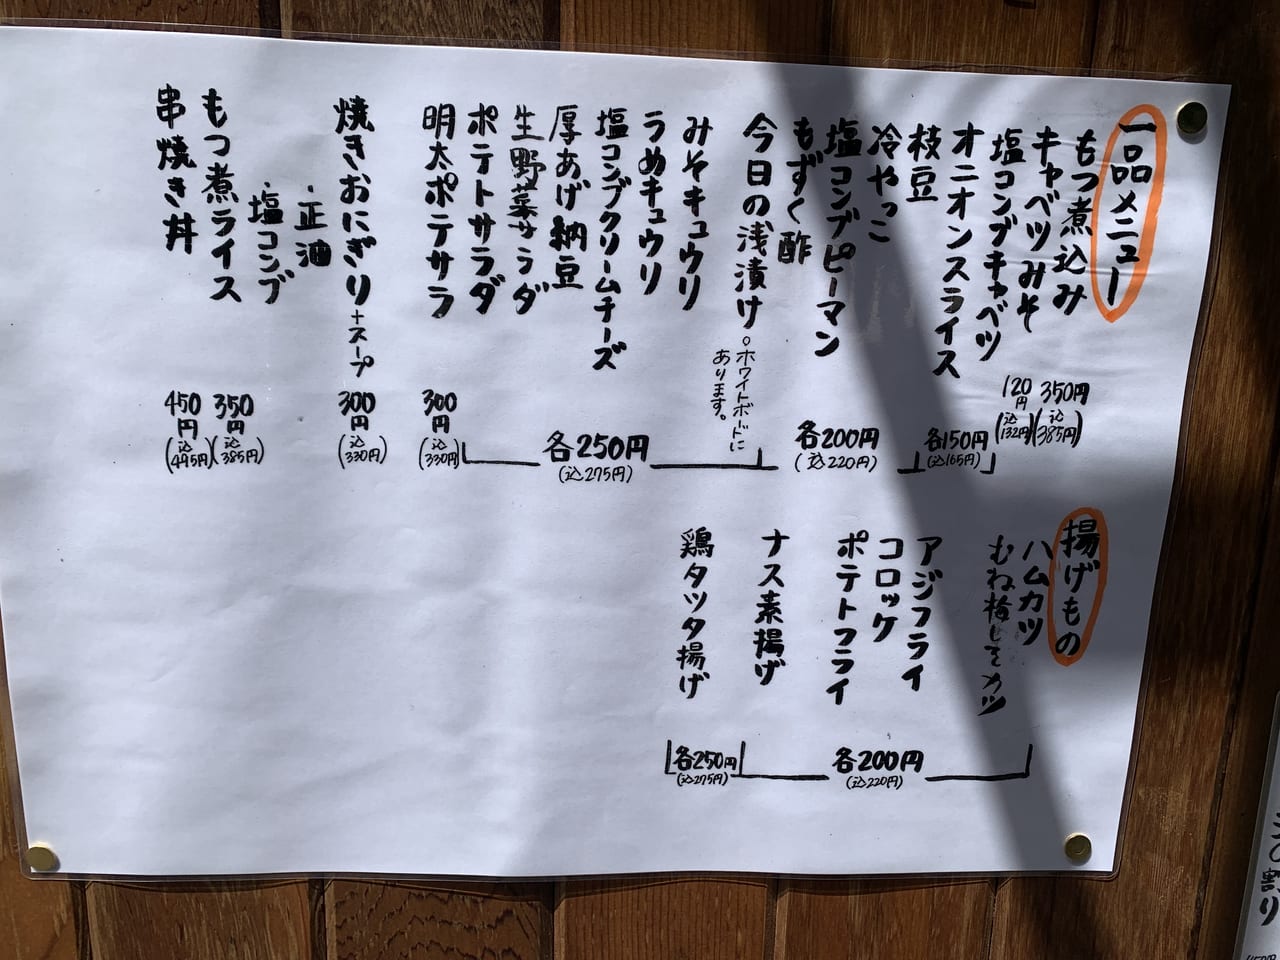 一品メニュー
もつ煮込み
350円
(込385円)
キャベツみそ
120円
(込132円)
塩コンブキャベツ
オニオンスライス
各150円
(込165円)
枝豆
冷やっこ
塩コンブピーマン
もずく酢
各200円
(込220円)
今日の浅漬け
○ホワイトボードに
あります。
みそキュウリ
うめキュウリ
塩コンブクリームチーズ
厚あげ納豆
生野菜サラダ
ポテトサラダ
各250円
(込275円)
明太ポテサラ
300円
(込330円)
焼きおにぎり+スープ
300円
(込330円)
・正油
・塩コンブ
もつ煮ライス
350円
(込385円)
串焼き丼
450円
(込495円)
揚げもの
ハムカツ
むね梅しそカツ
アジフライ
コロッケ
ポテトフライ
ナス素揚げ
各200円
(込220円)
鶏タツタ揚げ
各250円
(込275円)
割り